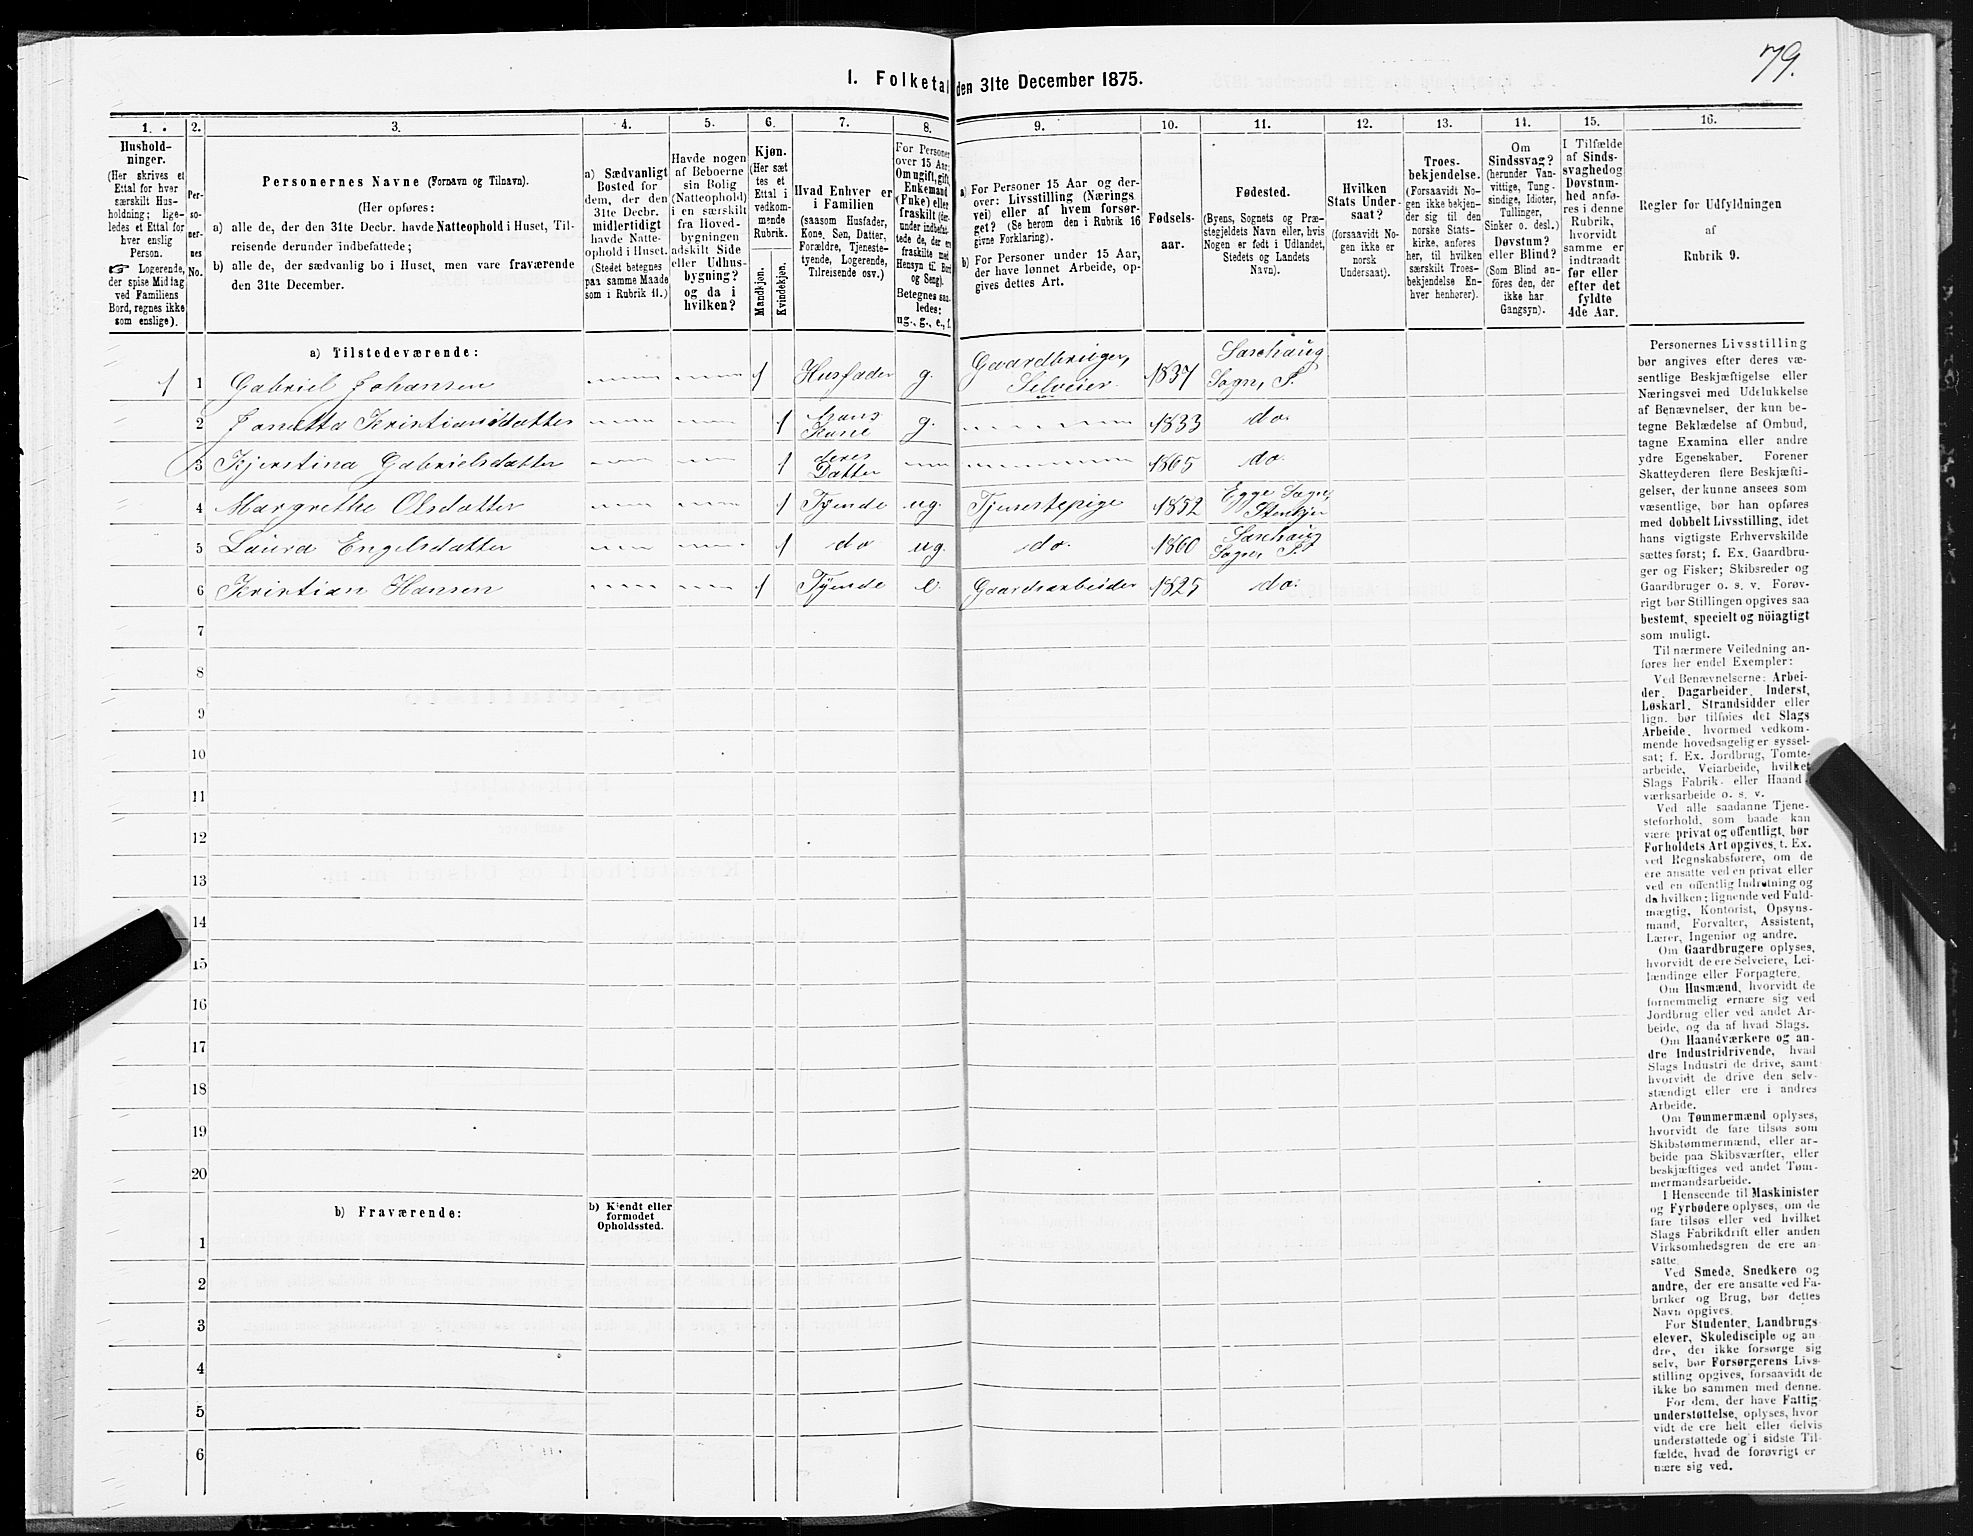 79.
I. Folketal den 31te December 1875.
1. 2. 3. 4. 5. 6. 7. 8. 9. 10. 11. 12. 13. 14. 15. 16.
Hushold-
ninger.
(Her skrives et
Ettal for hver
særskilt Hus-
holdning; lige-
ledes et Ettal for
hver enslig
Person.
☞ Logerende,
der spise Middag
ved Familiens
Bord, regnes ikke
som enslige).
Per-
so-
ner-
nes
No.
Personernes Navne (Fornavn og Tilnavn).
(Her opføres:
a) alle de, der den 31te Decbr. havde Natteophold i Huset, Til-
reisende derunder indbefattede;
b) alle de, der sædvanlig bo i Huset, men vare fraværende
den 31te December.
a) Sædvanligt
Bosted for
dem, der den
31te Decbr.
midlertidigt
havde Natte-
ophold i Huset.
(Stedet betegnes
paa samme Maade
som i Rubrik 11.)
Havde nogen
af Beboerne
sin Bolig
(Natteophold)
i en særskilt
fra Hoved-
bygningen
adskilt Side
eller Udhus-
bygning?
og da i
hvilken?
Kjøn.
(Her sæt
tes et
Ettal i
vedkom-
mende
Rubrik.
Mandkjøn.
Kvindekjøn.
Hvad Enhver er
i Familien
(saasom Husfader,
Kone, Søn, Datter,
Forældre, Tjeneste-
tyende, Logerende,
Tilreisende osv.)
For Personer
over 15 Aar:
Om ugift, gift,
Enkemand
(Enke) eller
fraskilt (der-
under indbefat-
tede de, der ere
fraskilte med
Hensyn til Bord
og Seng).
Betegnes saa-
ledes:
ug., g., e., f.
a) For Personer 15 Aar og der-
over: Livsstilling (Nærings
vei) eller af hvem forsør-
get? (Se herom den i Rubrik 16
givne Forklaring).
b) For Personer under 15 Aar,
der have lønnet Arbeide, op-
gives dettes Art.
Fødsels-
aar.
Fødested.
(Byens, Sognets og Præ-
stegjeldets Navn eller, hvis
Nogen er født i Udlandet,
Stedets og Landets
Navn).
Hvilken
Stats Under-
saat?
(forsaavidt No-
gen ikke er
norsk
Undersaat).
Troes-
bekjendelse.
(Forsaavidt No-
gen ikke bekjen-
der sig til den
norske Stats-
kirke, anføres
her, til hvilken
særskilt Troes-
bekjendelse En-
hver henhører).
Om
Sindssvag?
(herunder Van-
vittige, Tung-
sindige, Idioter,
Tullinger,
Sinker o. desl.)
Døvstum?
eller Blind?
(Som Blind an-
føres den, der
ikke har
Gangsyn).
I Tilfælde
af Sinds-
svaghed og
Døvstum-
hed anfø-
res i denne
Rubrik,
hvorvidt
samme er
indtraadt
før eller
efter det
fyldte
4de Aar.
Regler for Udfyldningen
af
Rubrik 9.
a) Tilstedeværende:
1 1 Gabriel Johansen 1 Husfader g. Gaardbruger, Selveier. 1837 Saxhaug Sogn, P.
2 Janetta Kristiansdatter 1 hans Kone g. 1833 do.
3 Kjerstina Gabrielsdatter 1 deres Datter 1865 do.
4 Margrethe Olsdatter 1 Tyende ug. Tjenestepige 1852 Egge Sogn, Stenkjer
5 Laura Engelsdatter 1 do ug. do. 1860 Saxhaug Sogn, P.
6 Kristian Hansen 1 Tyende e. Gaardsarbeider 1825 do.
7
8
9
10
11
12
13
14
15
16
17
18
19
20
b) Fraværende:
b) Kjendt eller
formodet
Opholdssted.
1
2
3
4
5
6
Personernes Livsstilling
bør angives efter deres væ-
sentlige Beskjæftigelse eller
Næringsvei med Udelukkelse
af Benævnelser, der kun be-
tegne Beklædelse af Ombud,
tagne Examina eller andre
ydre Egenskaber. Forener
Skatteyderen flere Beskjæfti-
gelser, der kunne ansees som
væsentlige, bør han opføres
med dobbelt Livsstilling, idet
hans vigtigste Erhvervskilde
sættes først; f. Ex. Gaardbru-
ger og Fisker; Skibsreder og
Gaardbruger o. s. v. Forøv-
rigt bør Stillingen opgives saa
bestemt, specielt og nöiagtigt
som muligt.
Til nærmere Veiledning an-
føres her endel Exempler:
Ved Benævnelserne: Arbei-
der, Dagarbeider, Inderst,
Løskarl, Strandsidder eller
lign. bør tilføies det Slags
Arbeide, hvormed vedkom-
mende hovedsagelig er syssel-
sat; f. Ex. Jordbrug, Tomte-
arbeide, Veiarbeide, hvilket
Slags Fabrik- eller Haand-
værksarbeide o. s. v.
Ved alle saadanne Tjene-
steforhold, som baade kan
være privat og offentligt, bør
Forholdets Art opgives, f. Ex.
ved Regnskabsførere, om de
ere ansatte ved en privat eller
ved en offentlig Indretning og
da hvilken; lignende ved Fuld-
mægtig, Kontorist, Opsyns-
mand, Forvalter, Assistent,
Lærer, Ingeniør og andre.
Om Gaardbrugere oplyses,
hvorvidt de ere Selveiere, Lei-
lændinge eller Forpagtere.
Om Husmænd, hvorvidt de
fornemmelig ernære sig ved
Jordbrug eller ved andet Ar-
beide, og da af hvad Slags.
Om Haandværkere og an-
dre Industridrivende, hvad
Slags Industri de drive, samt
hvorvidt de drive den selv-
stændigt eller ere i andres
Arbeide.
Om Tømmermænd oplyses,
hvorvidt de fare tilsøs som
Skibstømmermænd, eller ar-
beide paa Skibsværfter, eller
beskjæftiges ved andet Tøm-
mermandsarbeide.
I Henseende til Maskinister
og Fyrbødere oplyses, om de
fare tilsøs eller ved hvilket
Slags Fabrikdrift eller anden
Virksomhedsgren de ere an-
satte.
Ved Smede, Snedkere og
andre, der ere ansatte ved Fa-
briker og Brug, bør dettes
Navn opgives.
For Studenter, Landbrugs-
elever, Skoledisciple og an-
dre, der ikke forsørge sig
selv, bør Forsørgerens Livs-
stilling opgives, forsaavidt de
ikke bo sammen med denne.
For dem, der have Fattig-
understøttelse, oplyses, hvor
vidt de ere helt eller delvis
understøttede og i sidste Til-
fælde, hvad de forøvrigt er-
nære sig ved.